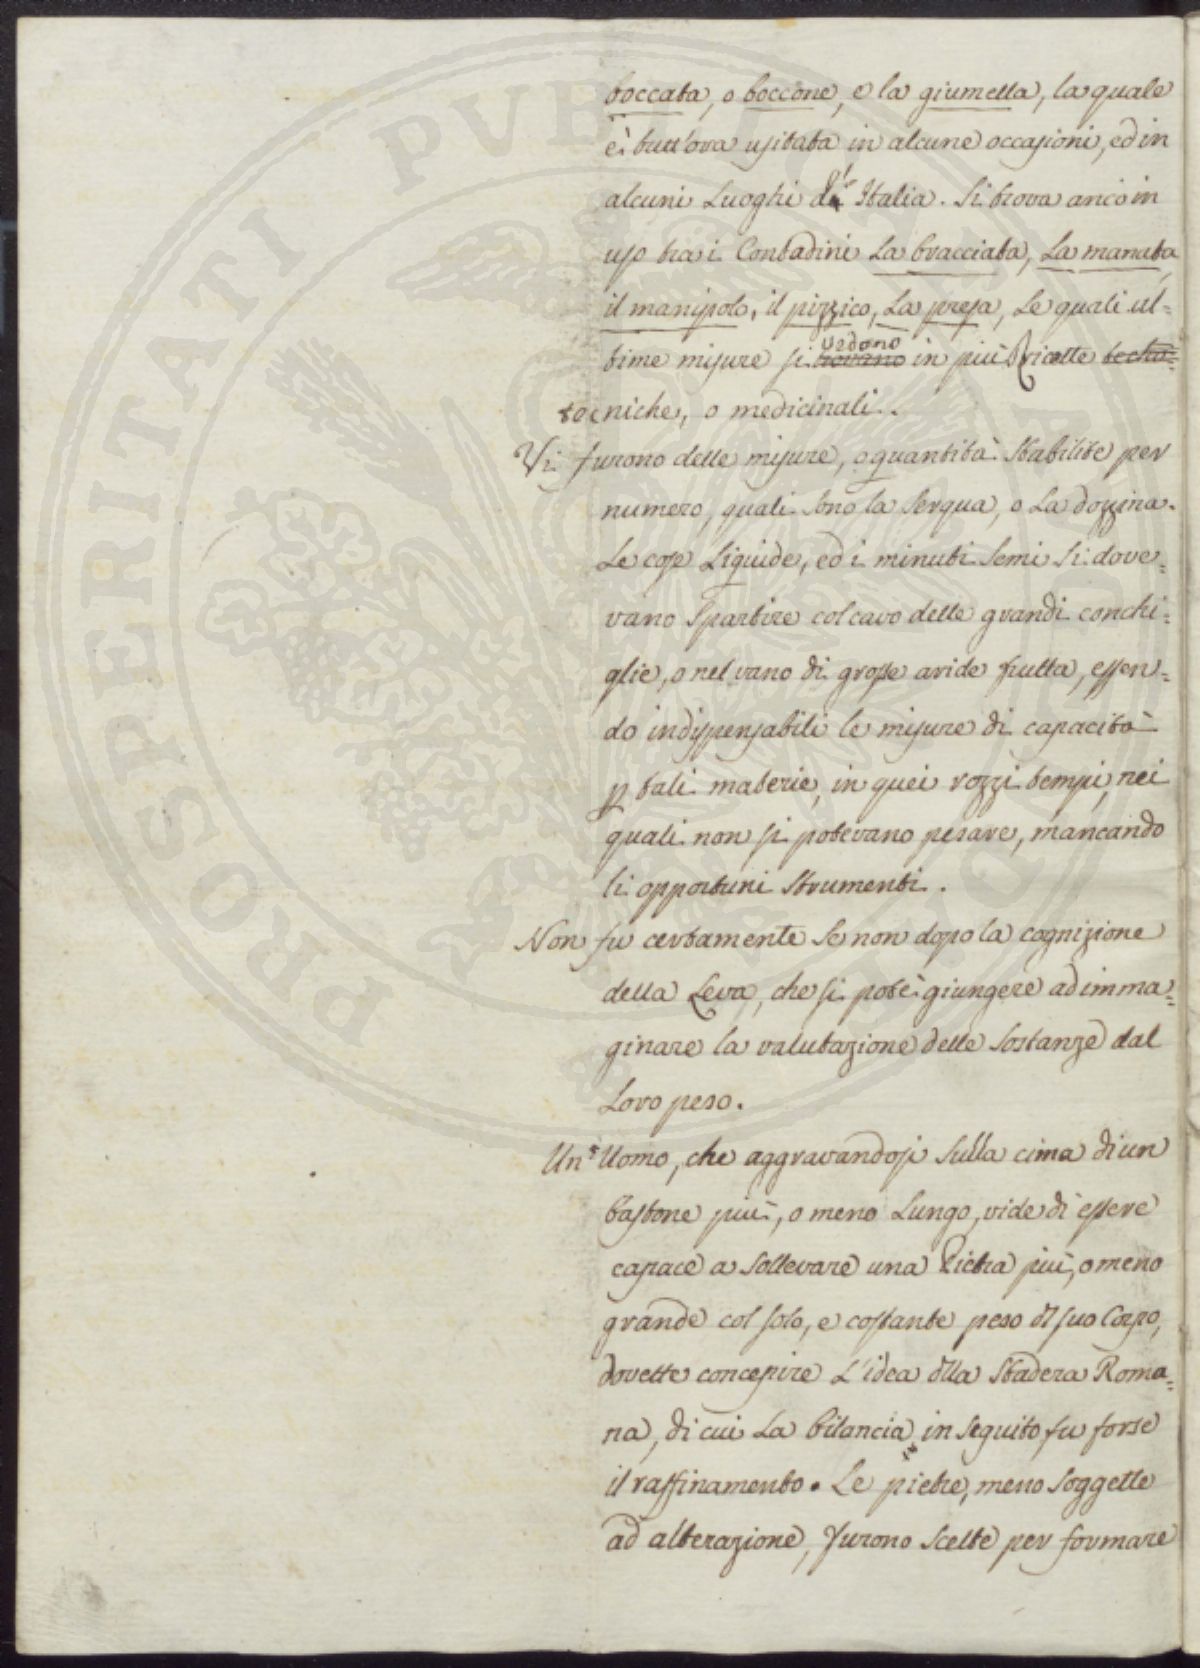 boccata, o boccone, e la giumella, la quale
è tutt'ora usitata in alcune occasioni, ed in
alcuni Luoghi d' Italia. Si trova anco in
uso tra i Contadini La bracciata, La manata,
il manipolo, il pizzico, La presa, Le quali ul=
time misure si vedono in più Ricette
niche, o medicinali.
Vi furono delle misure, o quantità Stabilite per
numero, quali Sono la Serqua, o La dozzina.
Le cose Liquide, ed i minuti Semi Si dove=
vano Spartire col cavo delle grandi conchi=
glie, o nel vano di grosse aride frutta, essen=
do indispensabili le misure di capacità
p tali materie, in quei rozzi tempi, nei
quali non si potevano pesare, mancando
li opportuni Strumenti.
Non fu certamente Se non dopo la cognizione
della Leva, che si potè giungere ad imma=
ginare la valutazione delle Sostanze dal
Loro peso.
Un' Uomo, che aggravandosi Sulla cima di un
bastone più, o meno Lungo, vide di essere
capace a Sollevare una Pietra più, o meno
grande col solo, e costante peso dl suo Corpo,
dovette concepire L'idea dlla Stadera Roma=
na, di cui La bilancia in Seguito fu forse
il raffinamento. Le pietre, meno Soggette
ad alterazione, furono Scelte per formare
PROSPERITATI